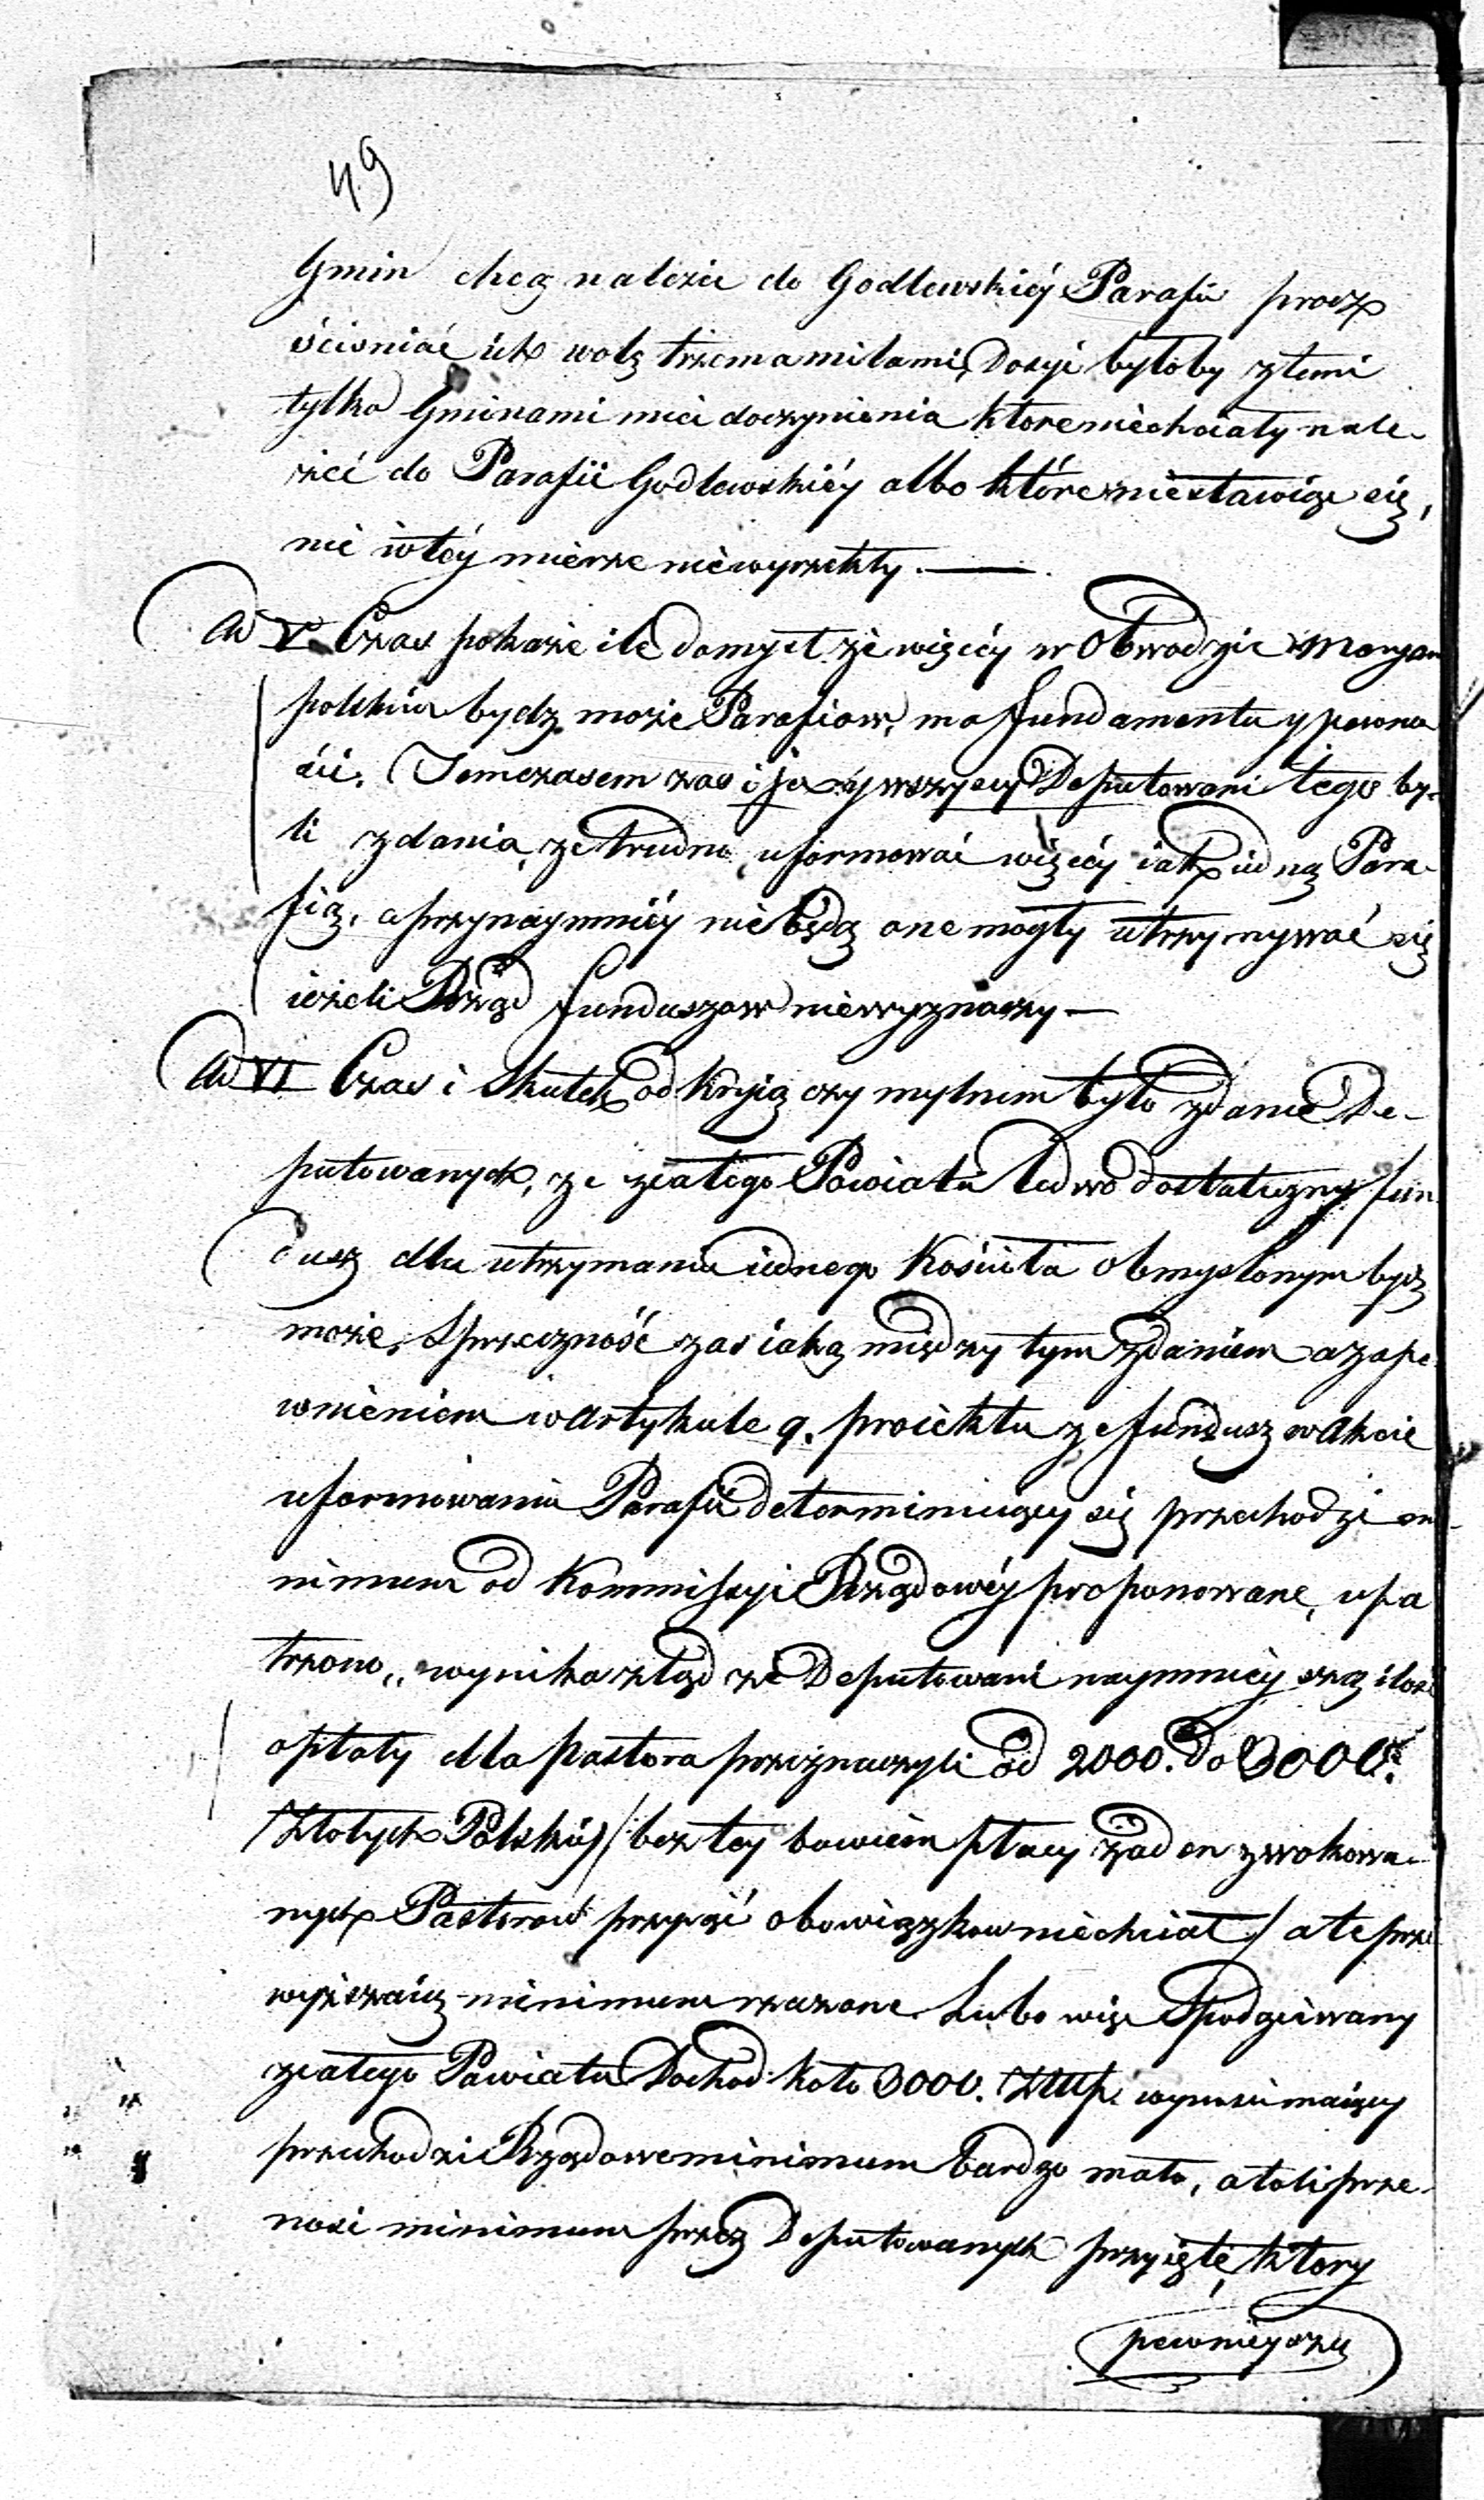 49
Gmin chcą należeć do Godlewskiéy Parafii procz
ścieśniać ich wolą trzema milami, Dosyć byłoby z temi
tylko Gminami mieć do czynienia które niechciały nale-
żeć do Parafii Godlewskiéy albo które niestawiąc się,
nic w téy mierze niewyrzekły. —
Ad V. Czas pokaże ile domysł że więcéy w Obwodzie Maryam
polskim bydź może Parafiow, ma fundamentu y pewno
ści. Temczasem zaś i ja y wszyscy Deputowani tego by-
li zdania, że trudno uformować więcéy iak iedną Para-
fią, a przynaymniéy nie będą one mogły utrzymywać się
ieżeli Rząd funduszow niewyznaczy —
Ad VI Czas i Skutek odkryią czy mylnem było zdanie De-
putowanych, że z całego Powiatu ledwo dostateczny fun
dusz dla utrzymania iednego Kościoła obmyślonym bydź
może, Sprzeczność zaś iaką między tym zdaniem a zape
wnieniem w Artykule 9. proiektu że fundusz w Akcie
uformowania Parafii determinuiący się przechodzi mi-
nimum od Kommissyi Rządowéy proponowane, upa
trzono, wynika ztąd że Deputowani naymnieyszą ilość
opłaty dla Pastora przeznaczyli od 2000. do 3000.
Złotych Polskich / bez tey bowiem płacy żaden z wokowa-
nych Pastorow przyiąć obowiązkow niechciał / ale prze
wyższaią minimum rzeczone. Lubo więc Spodziewany
z całego Powiatu Dochod koło 3000. Złłp. wynosić maiący
przechodzi Rządowe minimum bardzo mało, a toli prze-
nosi minimum przez Deputowanych przyięte, ktory
pewnieyszy